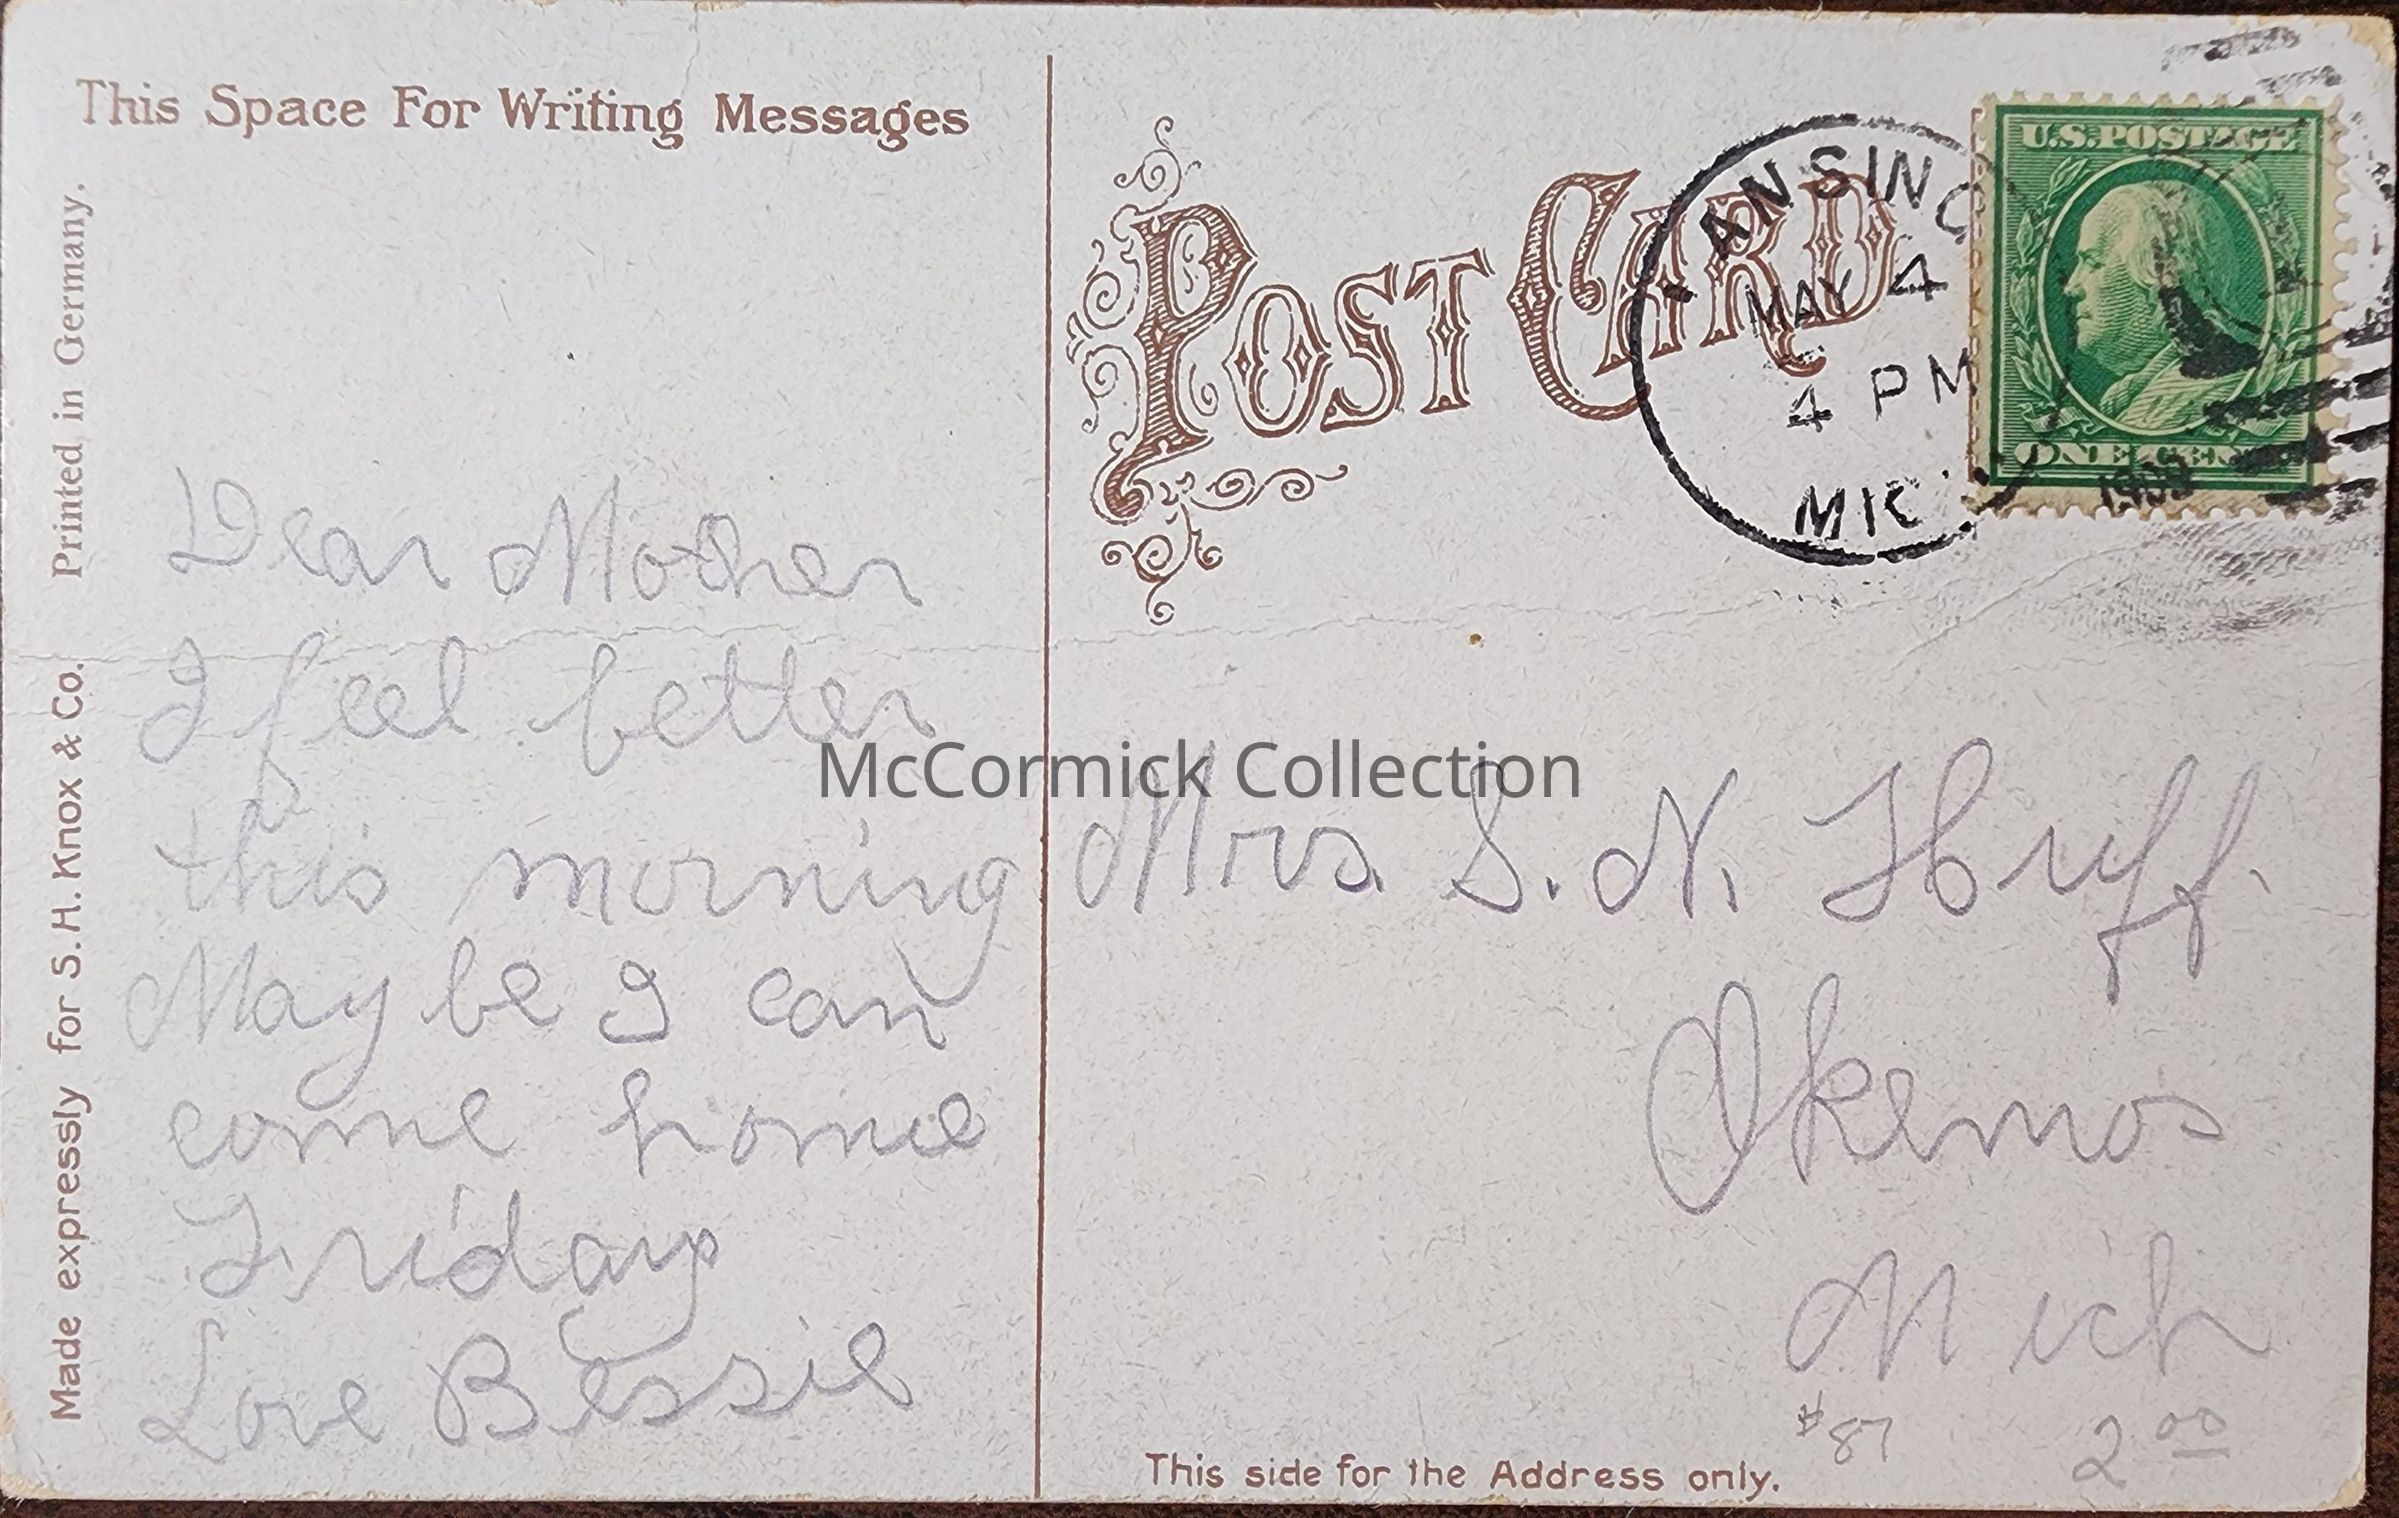 This Space For Writing Messages
Dear Mother
I feel better
this morning
May be I can
come home
Friday
Love Bessie
Made expressly for S.H. Knox & Co. Printed in Germany.
POST CARD
LANSING
MAY 4
4 PM
MICH
1909
U.S. POSTAGE
ONE CENT
Mrs. S. N. Huff.
Okemos
Mich
#87 2 00
This side for the Address only.
McCormick Collection